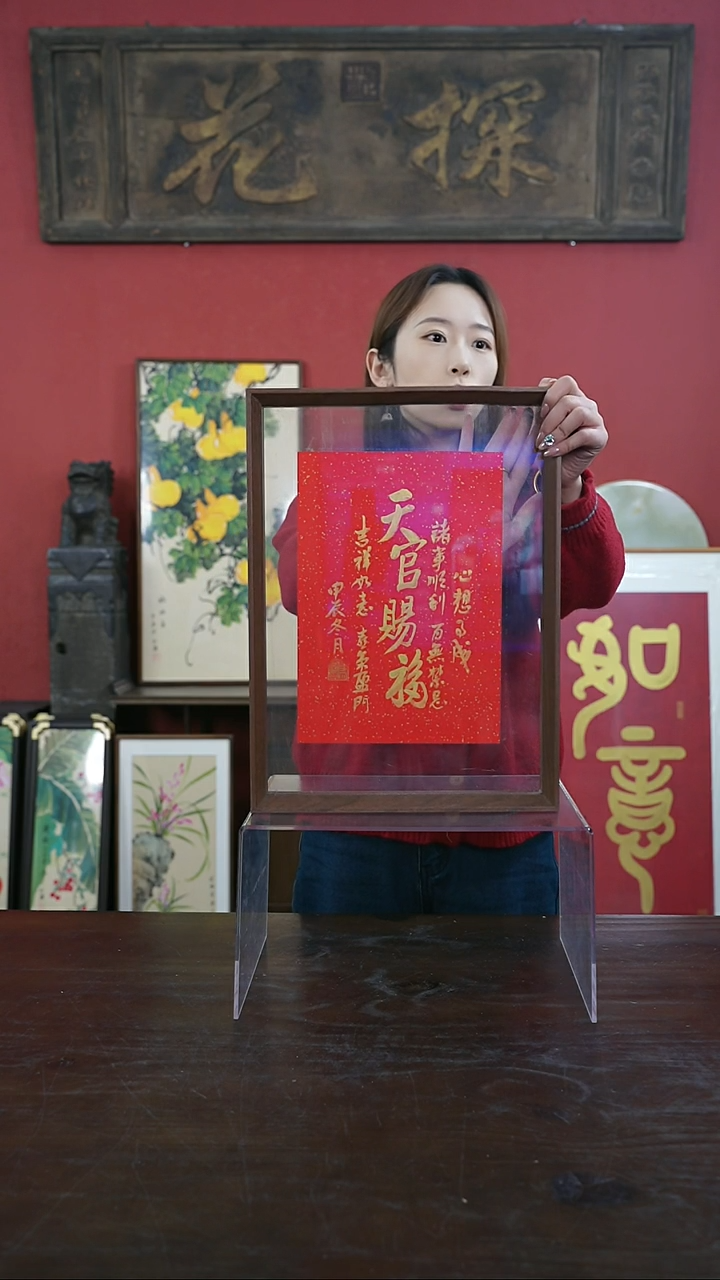 探花
心想事成
諸事順利 百無禁忌
天官賜福
吉祥如意 盈門
甲辰冬月
如意